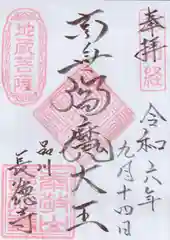 奉拝
令和六年
九月十四日
南無閻魔大王
品川
長徳寺
地蔵菩薩